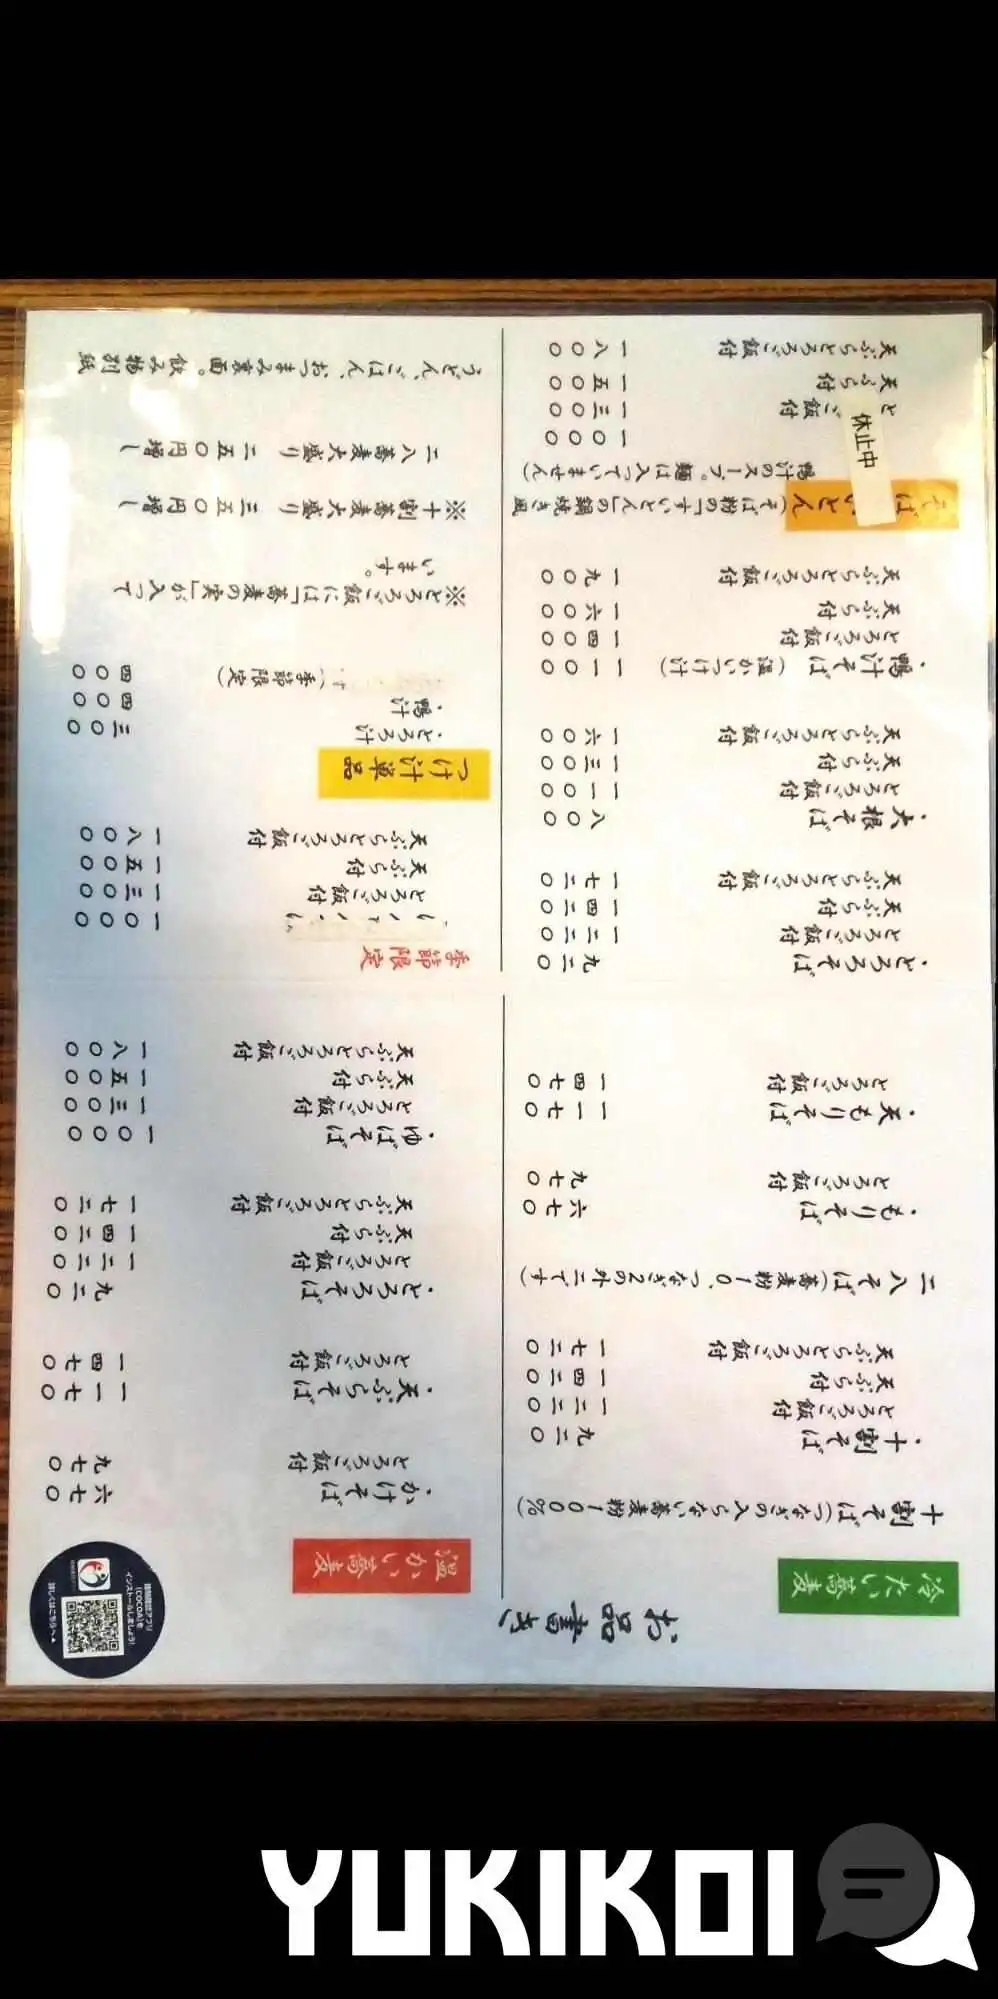 お品書き
冷たい蕎麦
十割そば(つなぎの入らない蕎麦粉100%)
・十割そば 九二〇
とろろご飯付 一二二〇
天ぷら付 一四二〇
天ぷらとろろご飯付 一七二〇
二八そば(蕎麦粉10、つなぎ2の外二です)
・もりそば 六七〇
とろろご飯付 九七〇
・天もりそば 一一七〇
とろろご飯付 一四七〇
・とろろそば 九二〇
とろろご飯付 一二二〇
天ぷら付 一四二〇
天ぷらとろろご飯付 一七二〇
・大根そば 八〇〇
とろろご飯付 一一〇〇
天ぷら付 一三〇〇
天ぷらとろろご飯付 一六〇〇
・鴨汁そば(温かいつけ汁) 一一〇〇
とろろご飯付 一四〇〇
天ぷら付 一六〇〇
天ぷらとろろご飯付 一九〇〇
そば いとん(そば粉の「すいとん」の鍋焼き風
鴨汁のスープ。麺は入っていません)
休止中
一〇〇〇
と ご飯付 一三〇〇
天ぷら付 一五〇〇
天ぷらとろろご飯付 一八〇〇
温かい蕎麦
・かけそば 六七〇
とろろご飯付 九七〇
・天ぷらそば 一一七〇
とろろご飯付 一四七〇
・とろろそば 九二〇
とろろご飯付 一二二〇
天ぷら付 一四二〇
天ぷらとろろご飯付 一七二〇
・ゆばそば 一〇〇〇
とろろご飯付 一三〇〇
天ぷら付 一五〇〇
天ぷらとろろご飯付 一八〇〇
季節限定
一〇〇〇
とろろご飯付 一三〇〇
天ぷら付 一五〇〇
天ぷらとろろご飯付 一八〇〇
つけ汁単品
・とろろ汁 三〇〇
・鴨汁 四〇〇
(季節限定) 四〇〇
※とろろご飯には「蕎麦の実」が入って
います。
※十割蕎麦大盛り 三五〇円増し
二八蕎麦大盛り 二五〇円増し
うどん、ごはん、おつまみ裏面。飲み物別紙
接触確認アプリ
(COCOA)を
インストールしましょう!
詳しくはこちらへ▲
YUKIKOI